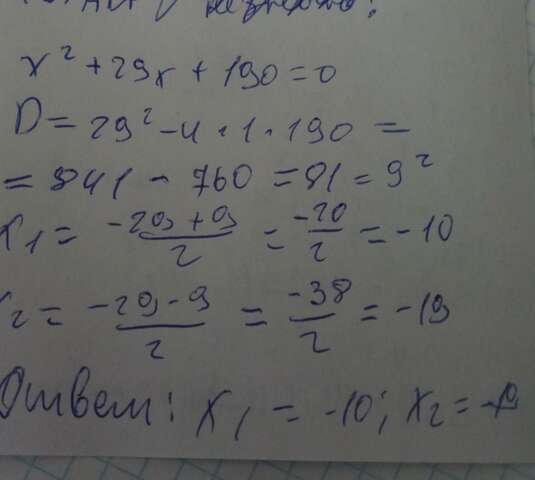 x² + 29x + 190 = 0
D = 29² - 4 · 1 · 190 =
= 841 - 760 = 81 = 9²
x₁ = (-29 + 9)/2 = -20/2 = -10
x₂ = (-29 - 9)/2 = -38/2 = -19
Ответ: x₁ = -10; x₂ =